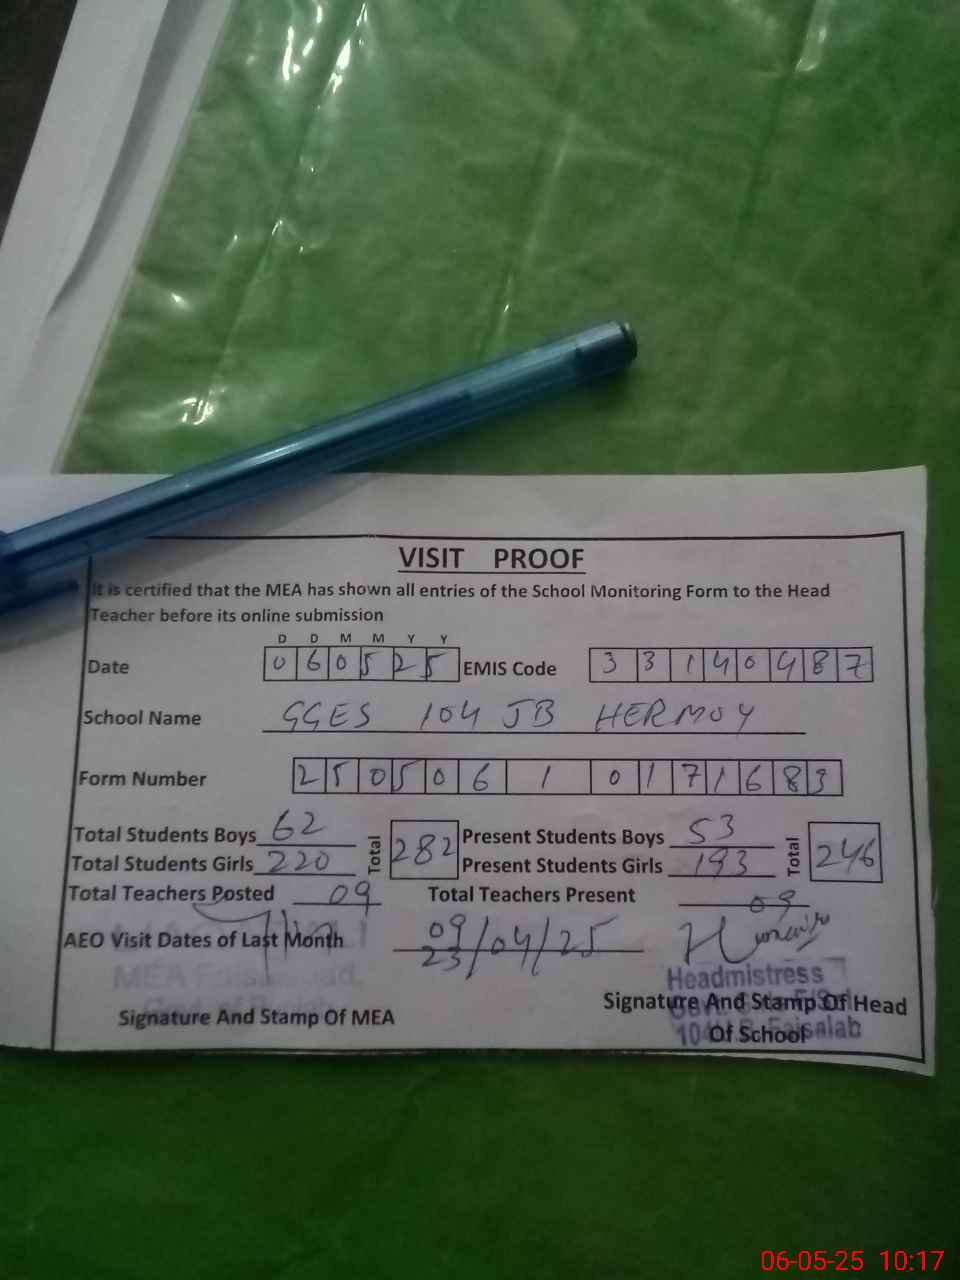 VISIT PROOF
It is certified that the MEA has shown all entries of the School Monitoring Form to the Head
Teacher before its online submission
D D M M Y Y
Date 0 6 0 5 2 5 EMIS Code 3 3 1 4 0 4 8 7
School Name GGES 104 JB HERMOY
Form Number 2 5 0 5 0 6 1 0 1 7 1 6 8 3
Total Students Boys 62 Total 282 Present Students Boys 53 Total 246
Total Students Girls 220 Present Students Girls 193
Total Teachers Posted 09 Total Teachers Present 09
AEO Visit Dates of Last Month 09/04/25
23
MEA
Headmistress
Signature And Stamp Of MEA Signature And Stamp Of Head
Of School
06-05-25 10:17